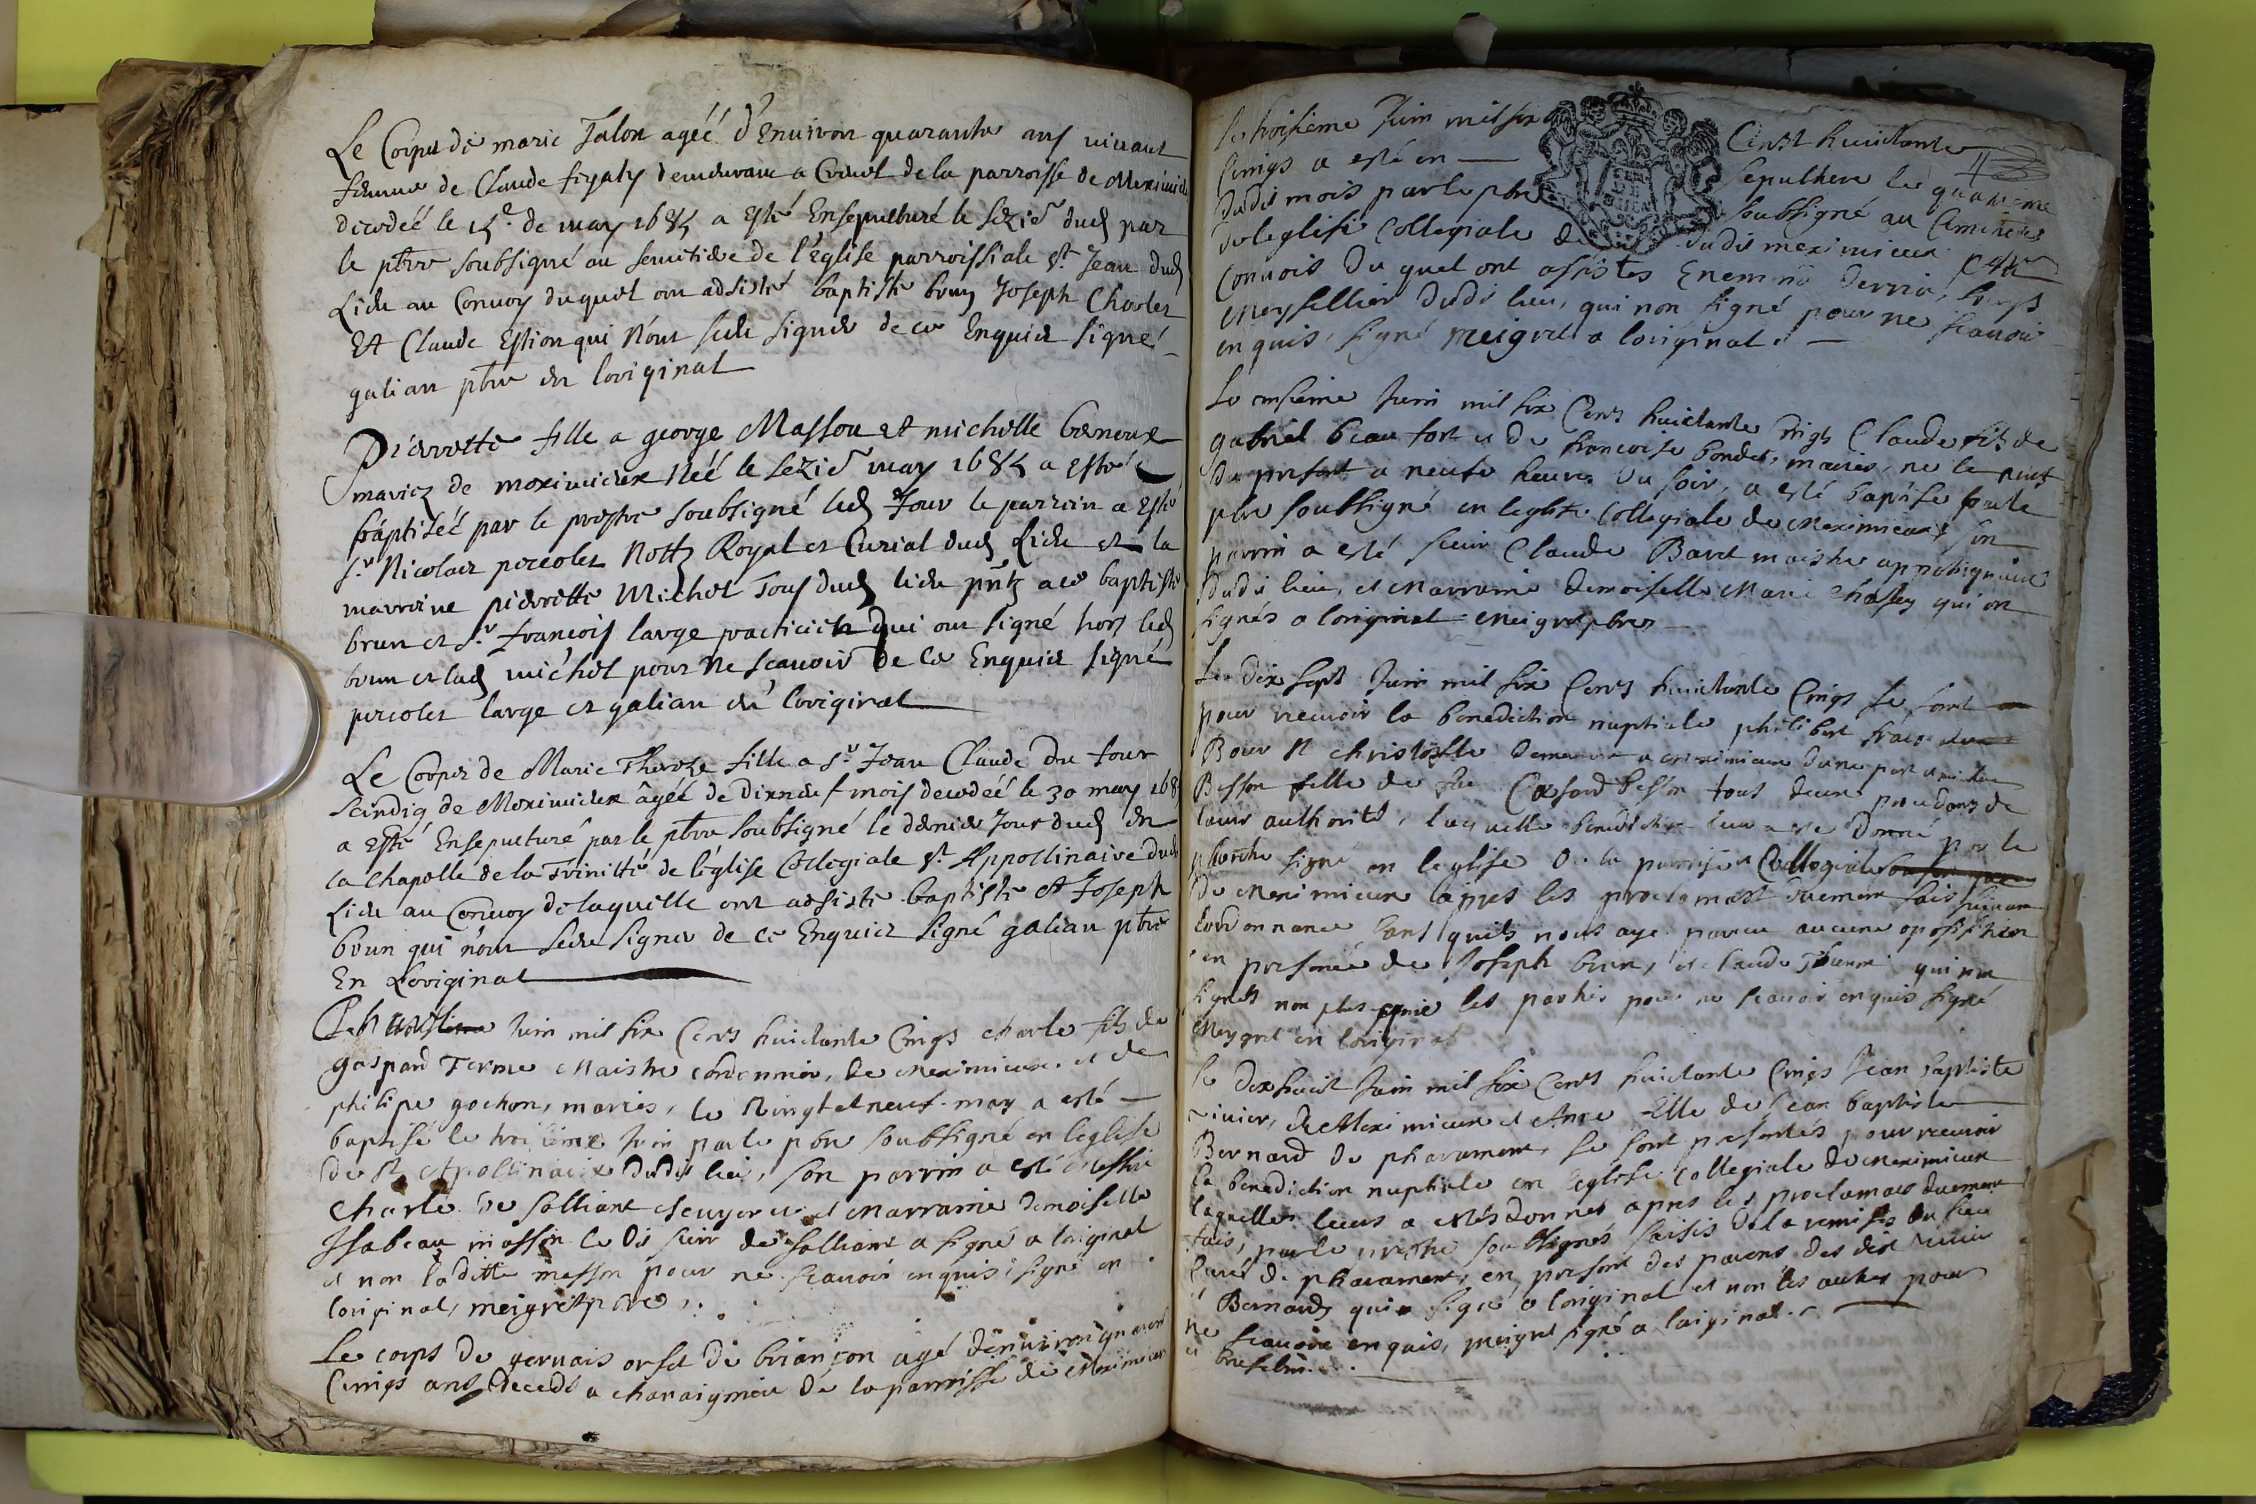 Le Corps de marie Talon agéé d'Environ quarante ans vivant
femme de Claude demeurant a Crevel de la parroisse de Meximieu
decedéé le 15e de may 1685 a Esté Ensepulturé le sezie dud par
le pbre soubsigné au semitiere de l'Eglise parroissiale St Jean dud
Lieu au Convoy duquel ont adsisté baptiste brun Joseph Charles
Et Claude Estion qui N'ont sceu signer de ce Enquier signé
galian pbre en L'original
Pierrette fille a george Masson et michelle berноux
mariez de meximieux Néé le sezie may 1685 a Esté
baptiséé par le prestre soubsigné led Jour le parrein a Esté
sr Nicolas percolet Nottr Royal et Curial dud Lieu et la
marreine pierrette Michel Tous dud lieu pntz a ce baptiste
brun et sr francois large practicien qui ont signé hors led
brun et lad michel pour Ne scavoir de Ce Enquier signé
percolet large et galian en L'original
Le Corps de Marie Thereze fille a sr Jean Claude Du four
scindig de Meximieux âgéé de Dixneuf mois decedéé le 30 may 168
a Esté Ensepulturé par le pbre soubsigné le dernier Jour dud En
la chapelle de la Trinitté de l'église Collegiale St Appollinaire dud
Lieu au Convoy de laquelle ont adsisté baptiste Et Joseph
brun qui n'ont sceu signer de Ce Enquier signé galian pbre
En L'original
Juin mil six Cents huictante Cings charle fils de
gaspard Ferme Maistre cordonnier, de Meximieux et de
philipe gochon, mariés, le Vingt et neuf may a esté
baptisé le troisieme Juin par le pbre soubsigné en l'eglise
de St Apollinaire dudis lieu, son parrin a esté Messire
Charle de Solliant escuyer et Marraine demoiselle
Isabeau masson le dis sieur de solliant a signé a loriginal
et non la ditte masson pour ne scavoir enquis, signé en
loriginal, meigret pbre.
Le corps de gervais orset de briançon agé denviron
Cings ans decedé a charaigniou de la parroisse de Meximieux
Le troisieme Juin mil six Cents huictante
Cings a esté en Sepulture le quatrieme
dudis mois par le pbre soubsigné au Cimetiere
de leglise Collegiale de dudis meximieux
Convois du quel ont assistes
Meysellier dudis lieu, qui non signé pour ne scavoir
en quis, signé meigret a loriginal.
Le onsieme Juin mil six Cents huictante Cings Claude fils de
gabriel beaufort et de francoise bondet, mariés, ne le neuf
du presant a neufe heures du soir, a esté baptisé par le
pbre soubsigné en leglise Collegiale de Meximieux son
parrin a esté sieur Claude Baret maistre
dudis lieu, et Marraine demoiselle Marie qui on
signés a loriginal Meigret pbre
Le Dix sept Juin mil six Cents huictante Cings se sont
pour recevoir la benediction nuptiale philibert
Bour St christofle demeurant a meximieux dune part et
Besson fille de feu Besson tous deux procedans de
leurs authorité, laquelle benediction leur a esté donné par le
signé en leglise de la parroisse Collegiale
de Meximieux apres les proclamast duement fais suivant
lordonnance sans quils nous aye paru aucune oposition
en presence de Joseph brun, et claude qui non
signés non plus que les parties pour ne scavoir enquis signé
Meygret en loriginal
Le dixhuict Juin mil six Cents huictante Cings Jean baptiste
rivier, de Meximieux et Anne fille de Jean baptiste
Bernard de pharamens, se sont presentés pour recevoir
la benediction nuptiale en leglise collegiale de Meximieux
laquelle leurs a estés donnes apres les proclamas duement
fais, par le prestre soubsignés saisis de la remise du sieur
Curé de pharamens, en presens des parens des dis rivier
et Bernard, qui signé a loriginal et non les autres pour
ne scavoir enquis, meigret signé a loriginal.